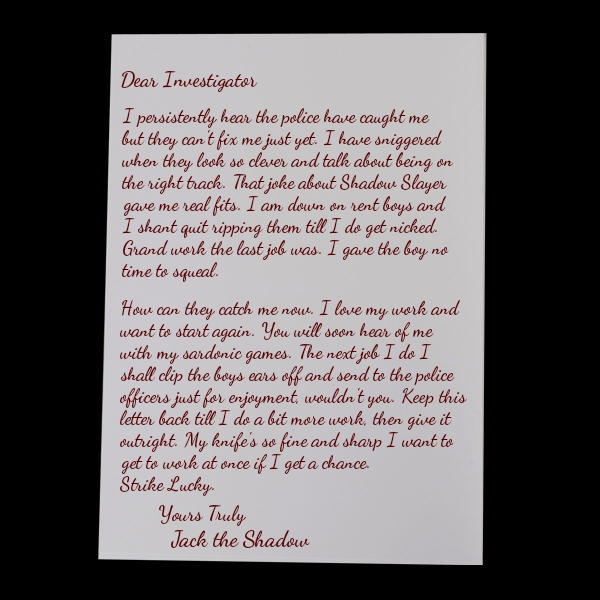 Dear Investigator
I persistently hear the police have caught me
but they can't fix me just yet. I have sniggered
when they look so clever and talk about being on
the right track. That joke about Shadow Slayer
gave me real fits. I am down on rent boys and
I shant quit ripping them till I do get nicked.
Grand work the last job was. I gave the boy no
time to squeal.
How can they catch me now. I love my work and
want to start again. You will soon hear of me
with my sardonic games. The next job I do I
shall clip the boys ears off and send to the police
officers just for enjoyment, wouldn't you. Keep this
letter back till I do a bit more work, then give it
outright. My knife's so fine and sharp I want to
get to work at once if I get a chance.
Strike Lucky.
Yours Truly
Jack the Shadow